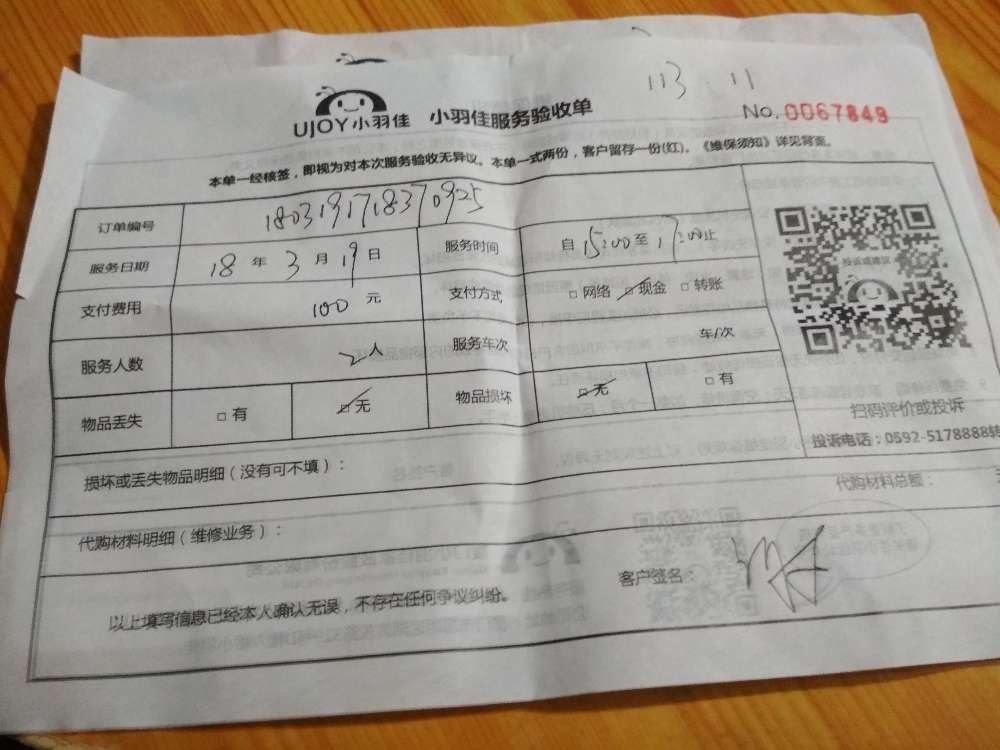 113.11
UJOY小羽佳 小羽佳服务验收单
No.0067849
本单一经核签，即视为对本次服务验收无异议。本单一式两份，客户留存一份(红)。《维保须知》详见背面。
订单编号 1803191718370925
服务日期 18 年 3 月 19 日 服务时间 自 15:00 至 17:00 止
支付费用 100 元 支付方式 □网络 □现金 □转账
服务人数 2人 服务车次 车/次
物品丢失 □有 □无 物品损坏 □无 □有
投诉或建议
扫码评价或投诉
投诉电话：0592-5178888转
损坏或丢失物品明细（没有可不填）：
代购材料明细（维修业务）： 代购材料总额：
客户签名：
以上填写信息已经本人确认无误，不存在任何争议纠纷。